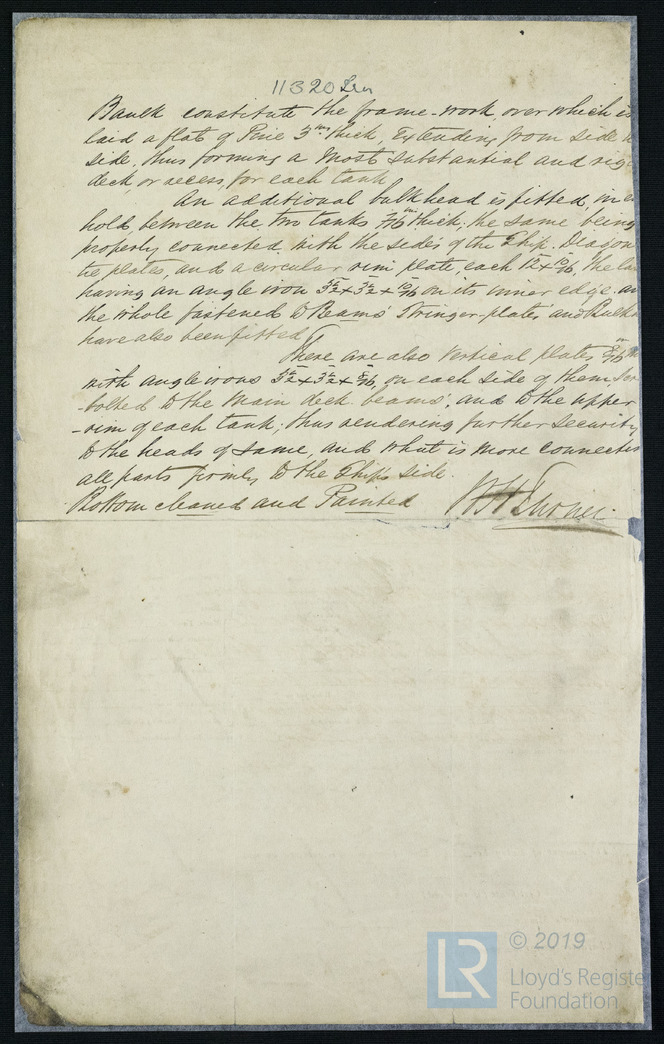 11320 Iron
Baulk constitute the frame-work, over which is
laid a flat of Pine 3 ins thick, Extending from side to
side, thus forming a Most Substantial and rig
deck, or access for each tank
An additional bulkhead is fitted, in
hold, between the two tanks 7/16 in thick; the same being
properly connected with the sides of the Ship. Diagon
tie plates, and a circular rim plate, each 12 x 10/16, the la
having an angle iron 3½ x 3½ x 10/16 on its inner edge. an
the whole fastened to Beams Stringer-plates and Bulk
have also been fitted
There are also Vertical plates 8/16 in
with angle irons 3½ x 3½ x 8/16, on each side of them,
-bolted to the Main deck beams, and to the upper
-rim of each tank; thus rendering further Security
to the heads of same, and what is more connectin
all parts firmly to the Ship's side.
Bottom cleaned and Painted
© 2019
LR
Lloyd's Register
Foundation